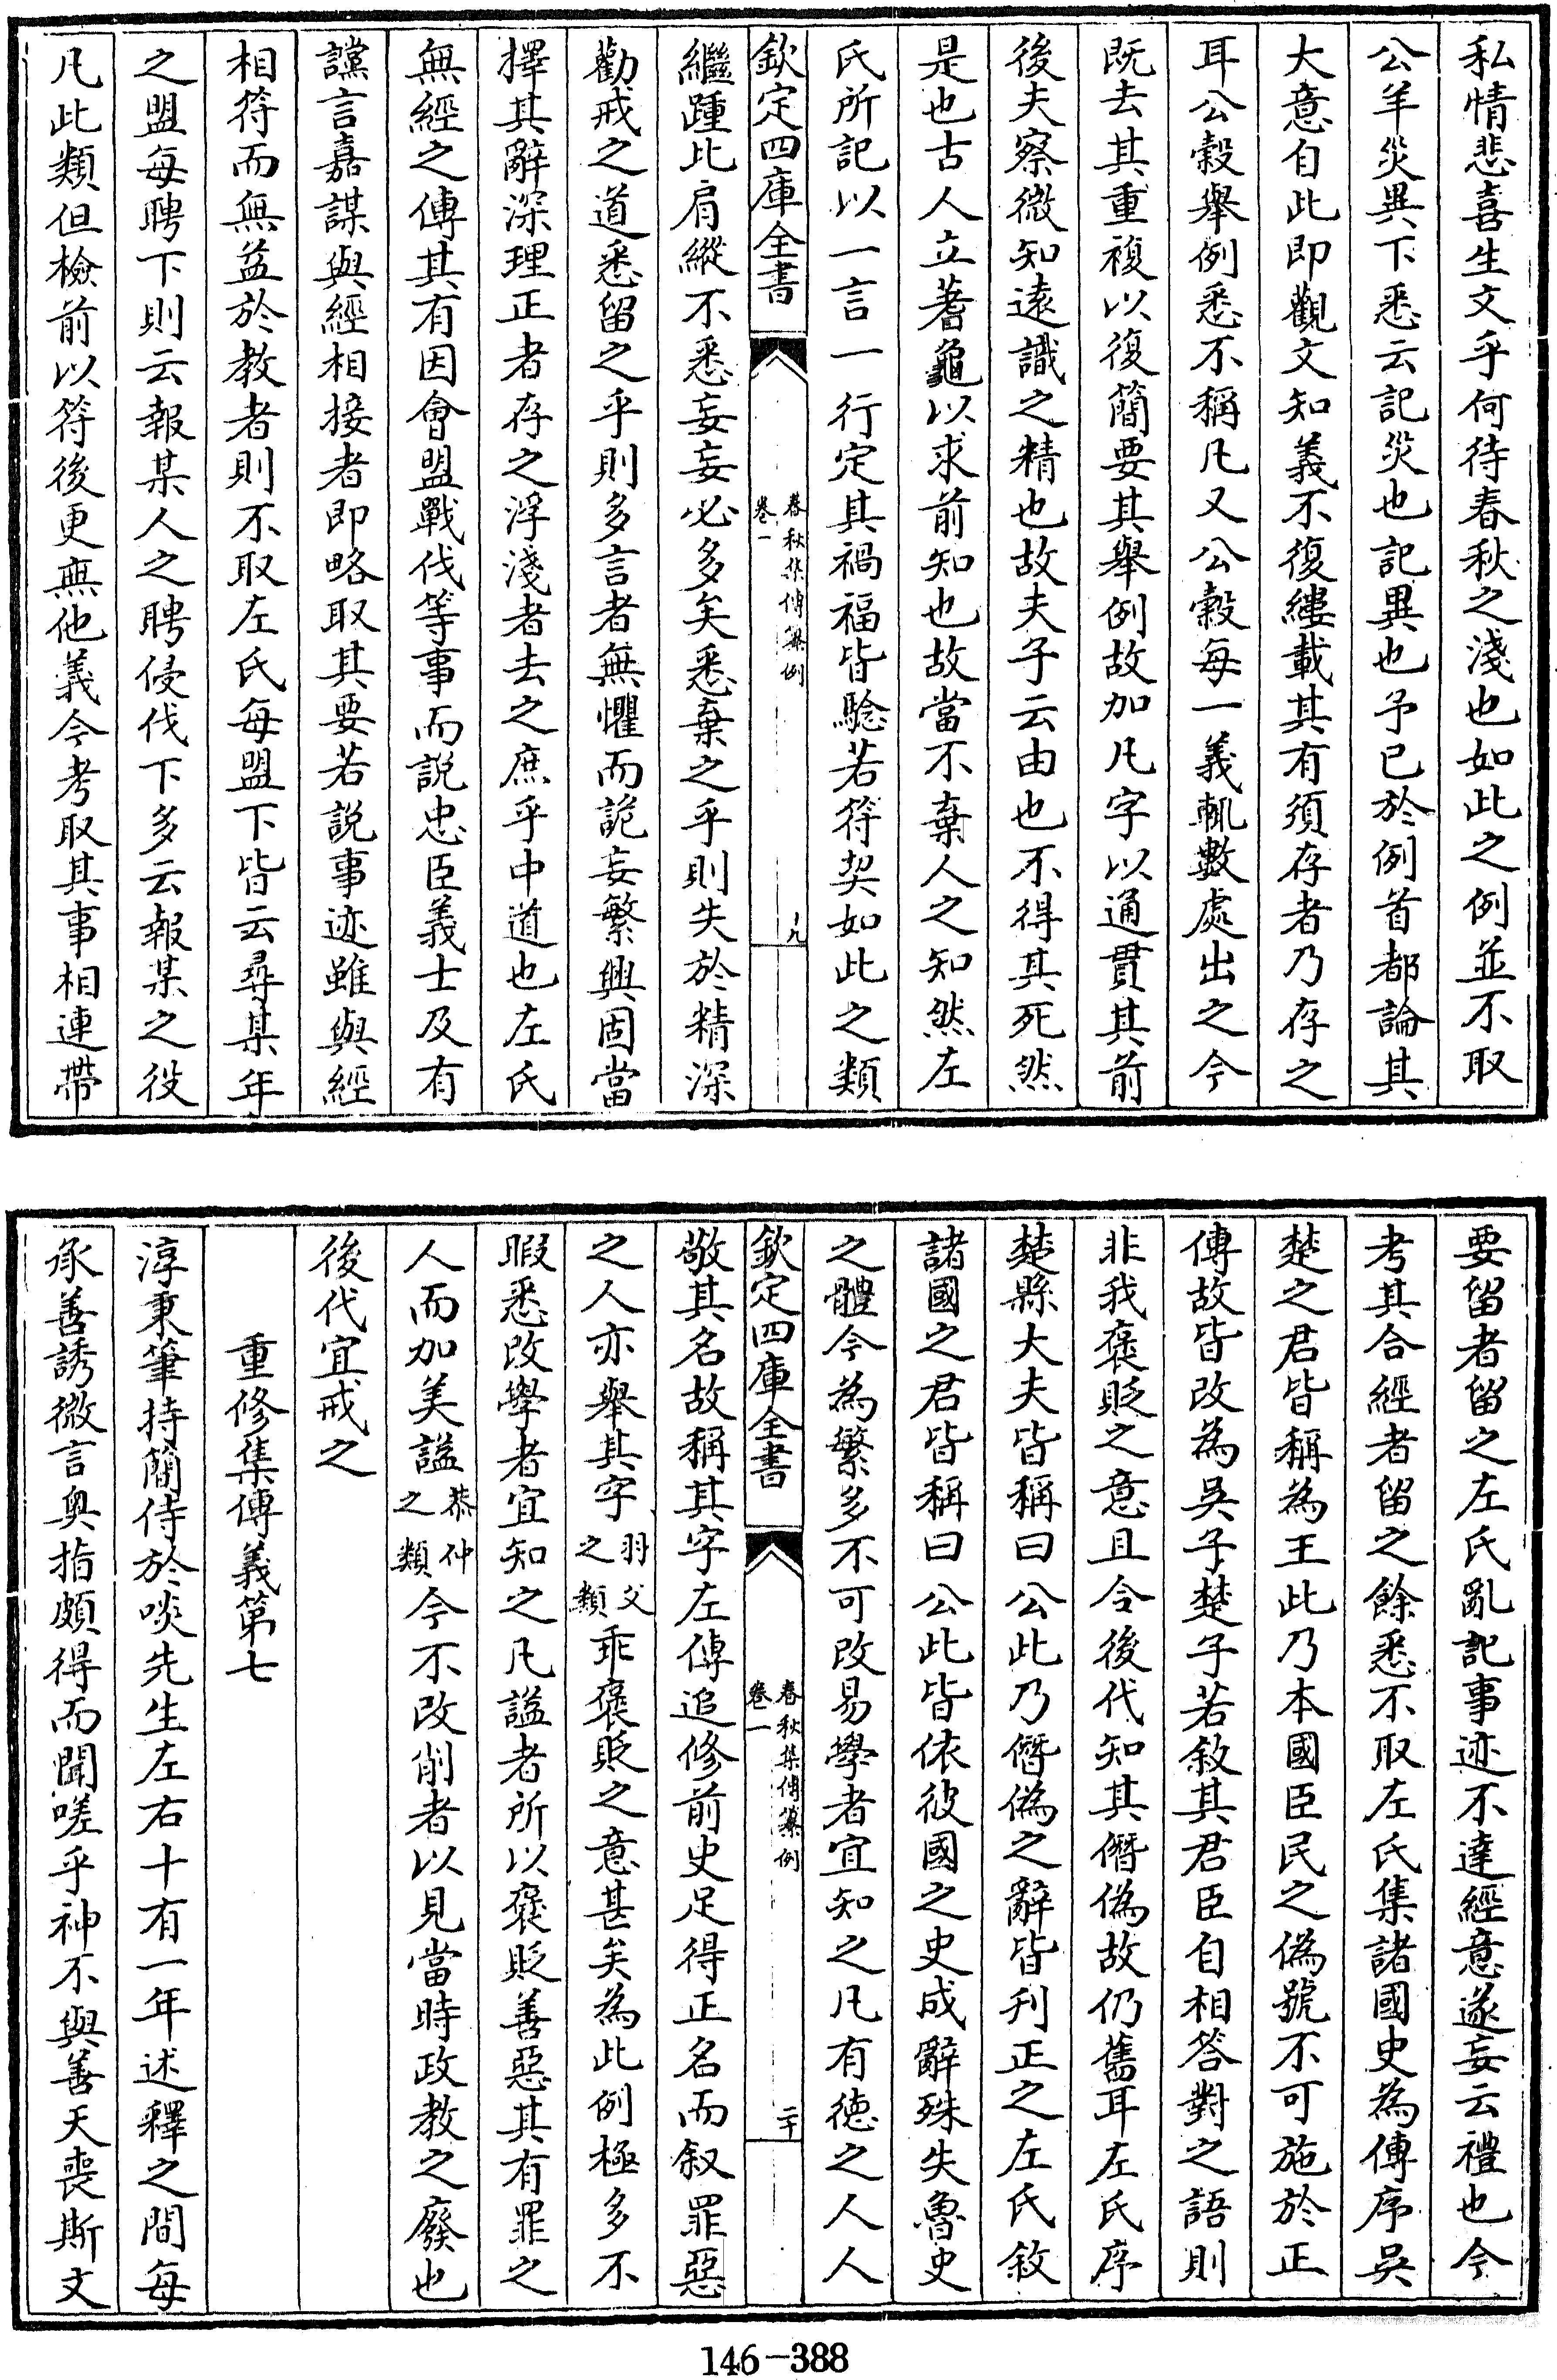 私情悲喜生文乎何待春秋之淺也如此之例並不取
公羊災異下悉云記災也記異也予已於例首都論其
大意自此即觀文知義不復縷載其有須存者乃存之
耳公穀舉例悉不稱凡又公穀每一義輒數處出之今
既去其重複以復簡要其舉例故加凡字以通貫其前
後夫察微知遠識之精也故夫子云由也不得其死然
是也古人立蓍龜以求前知也故當不棄人之知然左
氏所記以一言一行定其禍福皆驗若符契如此之類
欽定四庫全書
春秋集傳纂例
卷一
十九
繼踵比肩縱不悉妄妄必多矣悉棄之乎則失於精深
勸戒之道悉留之乎則多言者無懼而詭妄繁興固當
擇其辭深理正者存之浮淺者去之庶乎中道也左氏
無經之傳其有因會盟戰伐等事而說忠臣義士及有
讜言嘉謀與經相接者即略取其要若說事迹雖與經
相符而無益於教者則不取左氏每盟下皆云尋某年
之盟每聘下則云報某人之聘侵伐下多云報某之役
凡此類但檢前以符後更無他義今考取其事相連帶
要留者留之左氏亂記事迹不達經意遂妄云禮也今
考其合經者留之餘悉不取左氏集諸國史為傳序吳
楚之君皆稱為王此乃本國臣民之偽號不可施於正
傳故皆改為吳子楚子若敘其君臣自相答對之語則
非我褒貶之意且令後代知其僭偽故仍舊耳左氏序
楚縣大夫皆稱曰公此乃僭偽之辭皆刋正之左氏敘
諸國之君皆稱曰公此皆依彼國之史成辭殊失魯史
之體今為繁多不可改易學者宜知之凡有德之人人
欽定四庫全書
春秋集傳纂例
卷一
二十
敬其名故稱其字左傳追修前史足得正名而叙罪惡
之人亦舉其字羽父之類乖褒貶之意甚矣為此例極多不
暇悉改學者宜知之凡謚者所以褒貶善惡其有罪之
人而加美謚恭仲之類今不改削者以見當時政教之廢也
後代宜戒之
重修集傳義第七
淳秉筆持簡侍於啖先生左右十有一年述釋之間每
承善誘微言奧指頗得而聞嗟乎神不與善天喪斯文
146-388